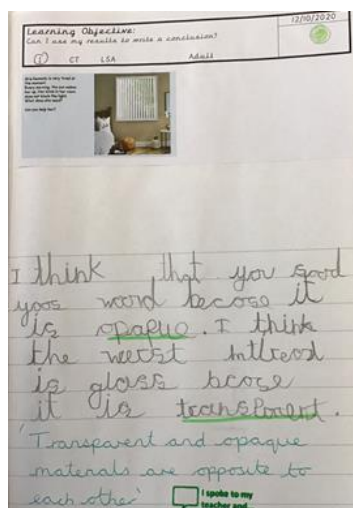 Learning Objective:
12/10/2020
Can I use my results to write a conclusion?
I CT LSA Adult
I think that you good
yoos woord becose it
is opapue. I think
the werst mtlreol
is glass bcose
it is transparent.
'Transparent and opaque
materials are opposite to
each other'
I spoke to my
teacher and